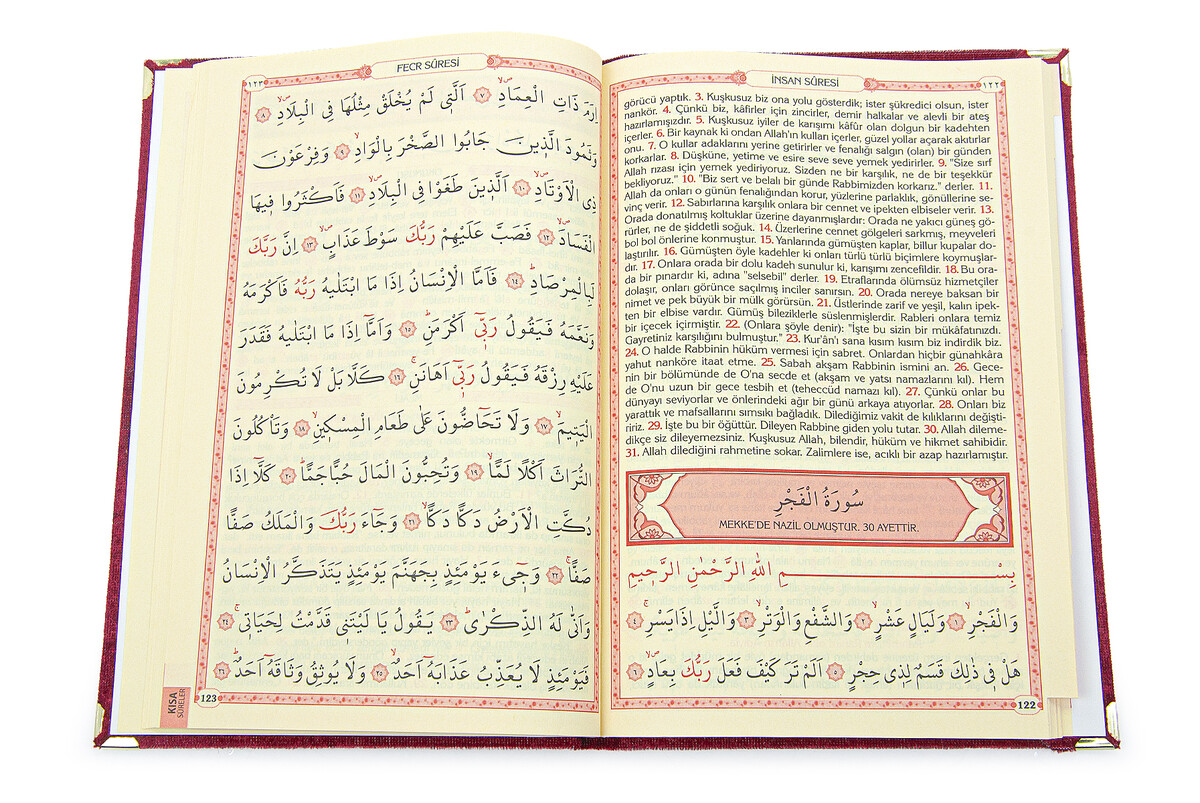 İNSAN SÛRESİ
١٢٢
görücü yaptık. 3. Kuşkusuz biz ona yolu gösterdik; ister şükredici olsun, ister
nankör. 4. Çünkü biz, kâfirler için zincirler, demir halkalar ve alevli bir ateş
hazırlamışızdır. 5. Kuşkusuz iyiler de karışımı kâfûr olan dolgun bir kadehten
içerler. 6. Bir kaynak ki ondan Allah'ın kulları içerler, güzel yollar açarak akıtırlar
onu. 7. O kullar adaklarını yerine getirirler ve fenalığı salgın (olan) bir günden
korkarlar. 8. Düşküne, yetime ve esire seve seve yemek yedirirler. 9. "Size sırf
Allah rızası için yemek yediriyoruz. Sizden ne bir karşılık, ne de bir teşekkür
bekliyoruz." 10. "Biz sert ve belalı bir günde Rabbimizden korkarız." derler. 11.
Allah da onları o günün fenalığından korur, yüzlerine parlaklık, gönüllerine se-
vinç verir. 12. Sabırlarına karşılık onlara bir cennet ve ipekten elbiseler verir. 13.
Orada donatılmış koltuklar üzerine dayanmışlardır: Orada ne yakıcı güneş gö-
rürler, ne de şiddetli soğuk. 14. Üzerlerine cennet gölgeleri sarkmış, meyveleri
bol bol önlerine konmuştur. 15. Yanlarında gümüşten kaplar, billur kupalar do-
laştırılır. 16. Gümüşten öyle kadehler ki onları türlü türlü biçimlere koymuşlar-
dır. 17. Onlara orada bir dolu kadeh sunulur ki, karışımı zencefildir. 18. Bu ora-
da bir pınardır ki, adına "selsebil" derler. 19. Etraflarında ölümsüz hizmetçiler
dolaşır, onları görünce saçılmış inciler sanırsın. 20. Orada nereye baksan bir
nimet ve pek büyük bir mülk görürsün. 21. Üstlerinde zarif ve yeşil, kalın ipek-
ten bir elbise vardır. Gümüş bileziklerle süslenmişlerdir. Rableri onlara temiz
bir içecek içirmiştir. 22. (Onlara şöyle denir): "İşte bu sizin bir mükâfatınızdı.
Gayretiniz karşılığını bulmuştur." 23. Kur'ân'ı sana kısım kısım biz indirdik biz.
24. O halde Rabbinin hüküm vermesi için sabret. Onlardan hiçbir günahkâra
yahut nanköre itaat etme. 25. Sabah akşam Rabbinin ismini an. 26. Gece-
nin bir bölümünde de O'na secde et (akşam ve yatsı namazlarını kıl). Hem
de O'nu uzun bir gece tesbih et (teheccüd namazı kıl). 27. Çünkü onlar bu
dünyayı seviyorlar ve önlerindeki ağır bir günü arkaya atıyorlar. 28. Onları biz
yarattık ve mafsallarını sımsıkı bağladık. Dilediğimiz vakit de kılıklarını değişti-
ririz. 29. İşte bu bir öğüttür. Dileyen Rabbine giden yolu tutar. 30. Allah dileme-
dikçe siz dileyemezsiniz. Kuşkusuz Allah, bilendir, hüküm ve hikmet sahibidir.
31. Allah dilediğini rahmetine sokar. Zalimlere ise, acıklı bir azap hazırlamıştır.
سُورَةُ الْفَجْرِ
MEKKE'DE NAZİL OLMUŞTUR. 30 AYETTİR.
بِسْمِ اللّٰهِ الرَّحْمٰنِ الرَّحٖيمِ
وَالْفَجْرِۙ ﴿١﴾ وَلَيَالٍ عَشْرٍۙ ﴿٢﴾ وَالشَّفْعِ وَالْوَتْرِۙ ﴿٣﴾ وَالَّيْلِ اِذَا يَسْرِۚ ﴿٤﴾
هَلْ فٖي ذٰلِكَ قَسَمٌ لِذٖي حِجْرٍ ﴿٥﴾ اَلَمْ تَرَ كَيْفَ فَعَلَ رَبُّكَ بِعَادٍۙ ﴿٦﴾
122
FECR SÛRESİ
١٢٣
اِرَمَ ذَاتِ الْعِمَادِۙ ﴿٧﴾ اَلَّتٖي لَمْ يُخْلَقْ مِثْلُهَا فِي الْبِلَادِۙ ﴿٨﴾
وَثَمُودَ الَّذٖينَ جَابُوا الصَّخْرَ بِالْوَادِۙ ﴿٩﴾ وَفِرْعَوْنَ
ذِي الْاَوْتَادِۙ ﴿١٠﴾ اَلَّذٖينَ طَغَوْا فِي الْبِلَادِۙ ﴿١١﴾ فَاَكْثَرُوا فٖيهَا
الْفَسَادَۙ ﴿١٢﴾ فَصَبَّ عَلَيْهِمْ رَبُّكَ سَوْطَ عَذَابٍۙ ﴿١٣﴾ اِنَّ رَبَّكَ
لَبِالْمِرْصَادِؕ ﴿١٤﴾ فَاَمَّا الْاِنْسَانُ اِذَا مَا ابْتَلٰيهُ رَبُّهُ فَاَكْرَمَهُ
وَنَعَّمَهُ فَيَقُولُ رَبّٖٓي اَكْرَمَنِؕ ﴿١٥﴾ وَاَمَّٓا اِذَا مَا ابْتَلٰيهُ فَقَدَرَ
عَلَيْهِ رِزْقَهُ فَيَقُولُ رَبّٖٓي اَهَانَنِۚ ﴿١٦﴾ كَلَّا بَلْ لَا تُكْرِمُونَ
الْيَتٖيمَۙ ﴿١٧﴾ وَلَا تَحَٓاضُّونَ عَلٰى طَعَامِ الْمِسْكٖينِۙ ﴿١٨﴾ وَتَأْكُلُونَ
التُّرَاثَ اَكْلًا لَمًّاۙ ﴿١٩﴾ وَتُحِبُّونَ الْمَالَ حُبًّا جَمًّاؕ ﴿٢٠﴾ كَلَّٓا اِذَا
دُكَّتِ الْاَرْضُ دَكًّا دَكًّاۙ ﴿٢١﴾ وَجَٓاءَ رَبُّكَ وَالْمَلَكُ صَفًّا
صَفًّاۚ ﴿٢٢﴾ وَجٖٓيءَ يَوْمَئِذٍ بِجَهَنَّمَ يَوْمَئِذٍ يَتَذَكَّرُ الْاِنْسَانُ
وَاَنّٰى لَهُ الذِّكْرٰىؕ ﴿٢٣﴾ يَقُولُ يَا لَيْتَنٖي قَدَّمْتُ لِحَيَاتٖيۚ ﴿٢٤﴾
فَيَوْمَئِذٍ لَا يُعَذِّبُ عَذَابَهُٓ اَحَدٌۙ ﴿٢٥﴾ وَلَا يُوثِقُ وَثَاقَهُٓ اَحَدٌؕ ﴿٢٦﴾
123
KISA
SÛRELER